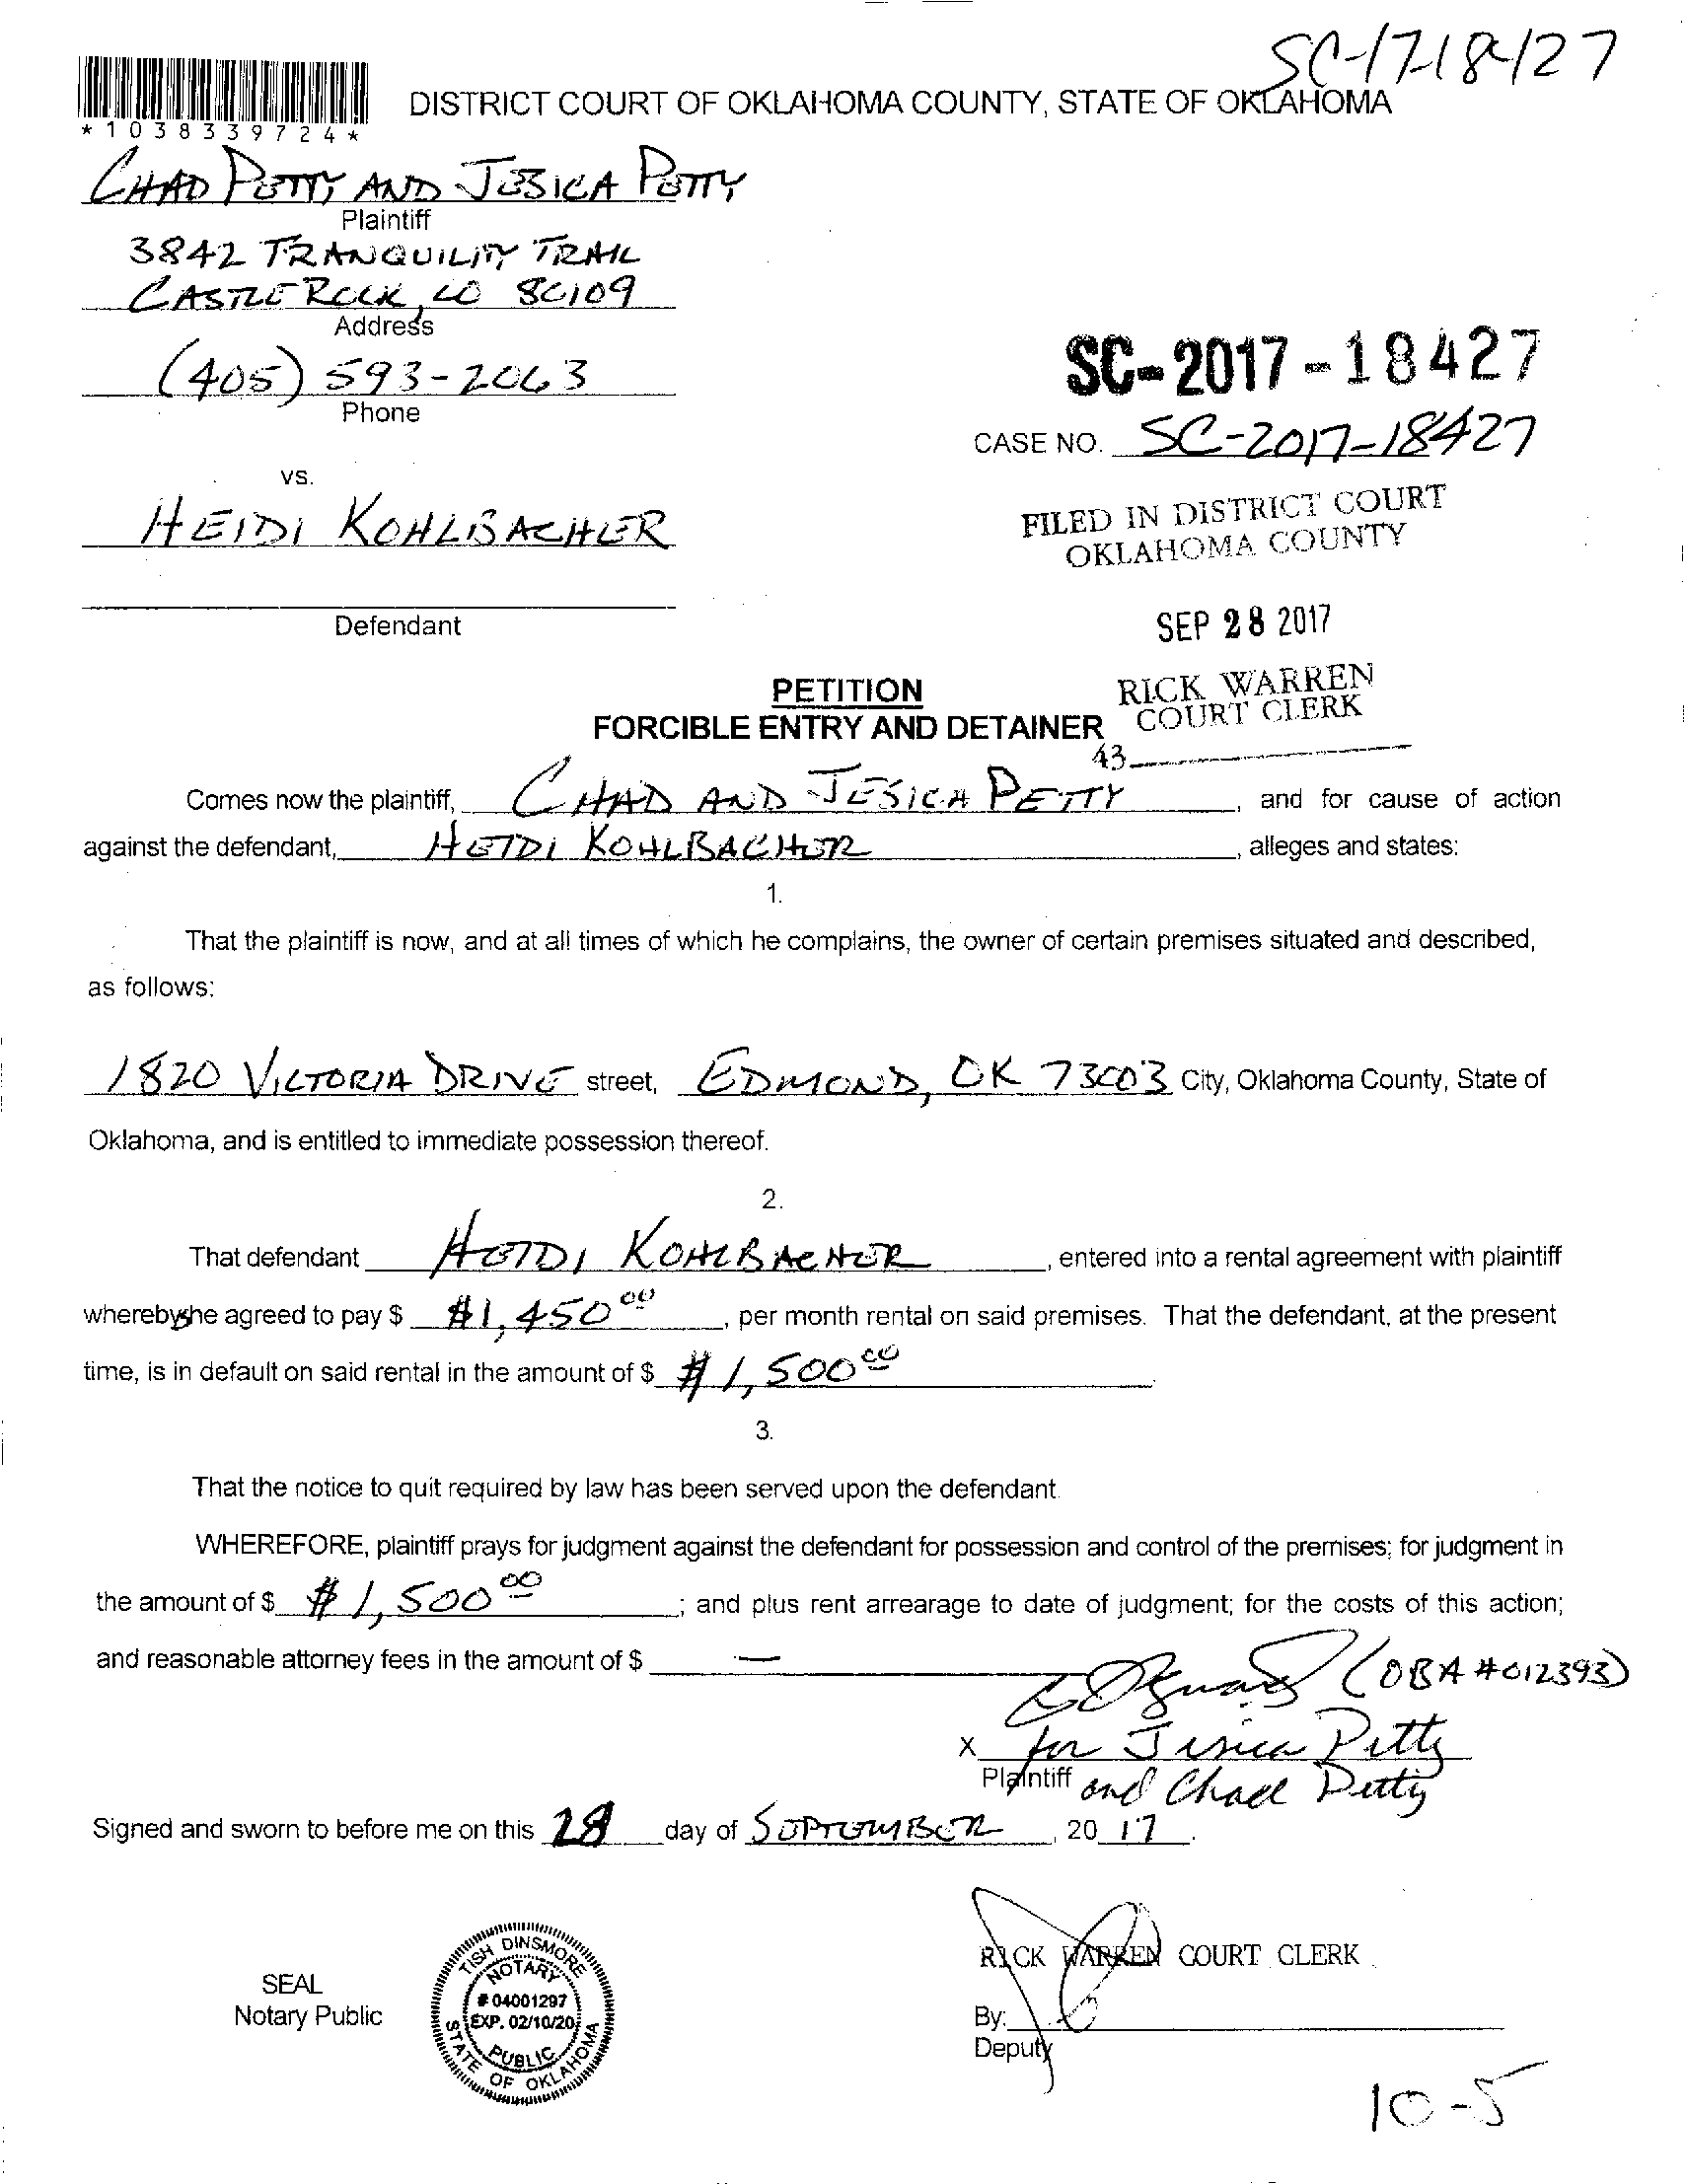 SC-17-18427
DISTRICT COURT OF OKLAHOMA COUNTY, STATE OF OKLAHOMA
*1038339724*
CHAD PETTY AND JESICA PETTY
Plaintiff
3842 TRANQUILITY TRAIL
CASTLE ROCK, CO 80109
Address
(405) 593-2063
Phone
SC-2017-18427
CASE NO. SC-2017-18427
vs.
HEIDI KOHLBACHER
FILED IN DISTRICT COURT
OKLAHOMA COUNTY
Defendant
SEP 28 2017
PETITION
RICK WARREN
FORCIBLE ENTRY AND DETAINER
COURT CLERK
43
Comes now the plaintiff, CHAD AND JESICA PETTY, and for cause of action
against the defendant, HEIDI KOHLBACHER, alleges and states:
1.
That the plaintiff is now, and at all times of which he complains, the owner of certain premises situated and described,
as follows:
1820 VICTORIA DRIVE street, EDMOND, OK 73003 City, Oklahoma County, State of
Oklahoma, and is entitled to immediate possession thereof.
2.
That defendant HEIDI KOHLBACHER, entered into a rental agreement with plaintiff
whereby she agreed to pay $ $1,450 00, per month rental on said premises. That the defendant, at the present
time, is in default on said rental in the amount of $ $1,500 00
3.
That the notice to quit required by law has been served upon the defendant.
WHEREFORE, plaintiff prays for judgment against the defendant for possession and control of the premises; for judgment in
the amount of $ $1,500 00; and plus rent arrearage to date of judgment; for the costs of this action;
and reasonable attorney fees in the amount of $ —
(OBA #012393)
X for Jesica Petty
Plaintiff and Chad Petty
Signed and sworn to before me on this 28 day of SEPTEMBER, 2017.
RICK WARREN COURT CLERK
SEAL
Notary Public
TISH DINSMORE
NOTARY
# 04001297
EXP. 02/10/20
PUBLIC
STATE OF OKLAHOMA
By:
Deputy
10-5